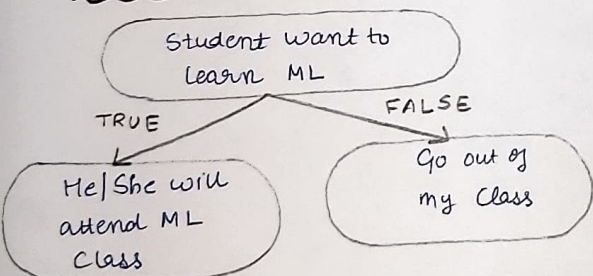 Student want to
learn ML
TRUE
FALSE
He/She will
attend ML
Class
Go out of
my Class